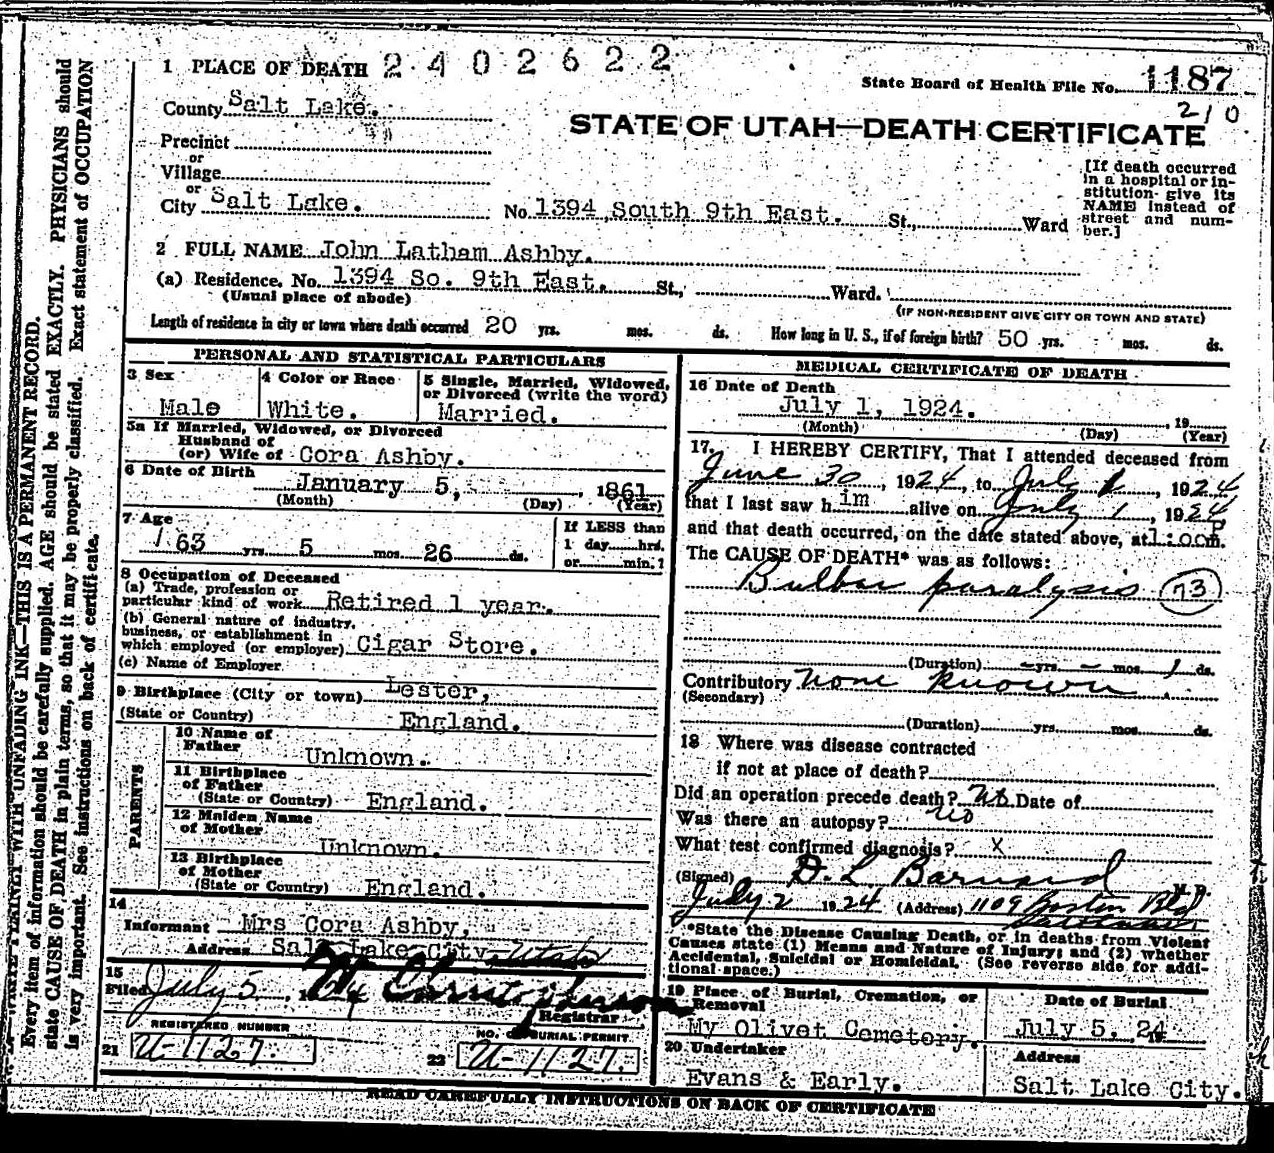 1 PLACE OF DEATH 2402622
State Board of Health File No. 1187
210
County Salt Lake.
STATE OF UTAH—DEATH CERTIFICATE
Precinct
or
Village
or
City Salt Lake. No. 1394 South 9th East. St., Ward
[If death occurred
in a hospital or in-
stitution give its
NAME instead of
street and num-
ber.]
2 FULL NAME John Latham Ashby.
(a) Residence. No. 1394 So. 9th East. St., Ward.
(Usual place of abode) (IF NON-RESIDENT GIVE CITY OR TOWN AND STATE)
Length of residence in city or town where death occurred 20 yrs. mos. ds. How long in U. S., if of foreign birth? 50 yrs. mos. ds.
PERSONAL AND STATISTICAL PARTICULARS
3 Sex
Male
4 Color or Race
White.
5 Single, Married, Widowed,
or Divorced (write the word)
Married.
5a If Married, Widowed, or Divorced
Husband of
(or) Wife of Cora Ashby.
6 Date of Birth
January 5, 1861
(Month) (Day) (Year)
7 Age
63 yrs. 5 mos. 26 ds.
If LESS than
1 day hrs.
or min.?
8 Occupation of Deceased
(a) Trade, profession or
particular kind of work Retired 1 year.
(b) General nature of industry,
business, or establishment in
which employed (or employer) Cigar Store.
(c) Name of Employer
9 Birthplace (City or town) Lester,
(State or Country) England.
PARENTS
10 Name of
Father Unknown.
11 Birthplace
of Father
(State or Country) England.
12 Maiden Name
of Mother Unknown.
13 Birthplace
of Mother
(State or Country) England.
14
Informant Mrs Cora Ashby,
Address Salt Lake City Utah
15
Filed July 5, 1924
Registrar
REGISTERED NUMBER
21 U-1127.
NO. OF BURIAL PERMIT
22 U-1127.
MEDICAL CERTIFICATE OF DEATH
16 Date of Death
July 1, 1924. , 19
(Month) (Day) (Year)
17. I HEREBY CERTIFY, That I attended deceased from
June 30, 1924, to July 1, 1924
that I last saw him alive on July 1, 1924
and that death occurred, on the date stated above, at 1:00 P m.
The CAUSE OF DEATH* was as follows:
Bulbar paralysis 73
(Duration) - yrs. - mos. 1 ds.
Contributory None known
(Secondary)
(Duration) yrs. mos. ds.
18 Where was disease contracted
if not at place of death?
Did an operation precede death? No Date of
Was there an autopsy? no
What test confirmed diagnosis? X
(Signed) D. L. Barnard M. D.
July 2 1924 (Address) 1109 Boston Bld
*State the Disease Causing Death, or in deaths from Violent
Causes state (1) Means and Nature of Injury; and (2) whether
Accidental, Suicidal or Homicidal. (See reverse side for addi-
tional space.)
19 Place of Burial, Cremation, or
Removal
My Olivet Cemetory.
Date of Burial
July 5, 24 19
20 Undertaker
Evans & Early.
Address
Salt Lake City.
READ CAREFULLY INSTRUCTIONS ON BACK OF CERTIFICATE
WRITE PLAINLY WITH UNFADING INK—THIS IS A PERMANENT RECORD.
Every item of information should be carefully supplied. AGE should be stated EXACTLY. PHYSICIANS should
state CAUSE OF DEATH in plain terms, so that it may be properly classified. Exact statement of OCCUPATION
is very important. See instructions on back of certificate.